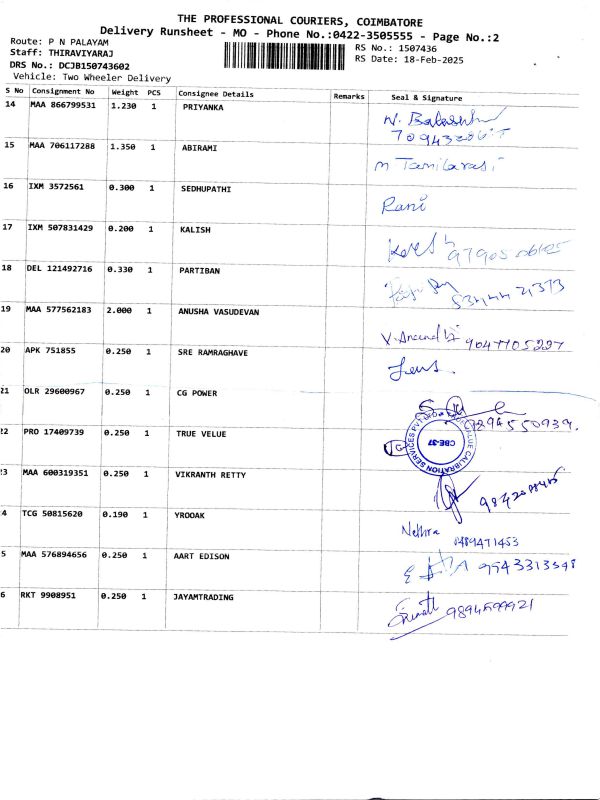 THE PROFESSIONAL COURIERS, COIMBATORE
Delivery Runsheet - MO - Phone No.:0422-3505555 - Page No.:2
Route: P N PALAYAM
Staff: THIRAVIYARAJ
DRS No.: DCJB150743602
Vehicle: Two Wheeler Delivery
RS No.: 1507436
RS Date: 18-Feb-2025
S No Consignment No Weight PCS Consignee Details Remarks Seal & Signature
14 MAA 866799531 1.230 1 PRIYANKA
15 MAA 706117288 1.350 1 ABIRAMI
16 IXM 3572561 0.300 1 SEDHUPATHI Rani
17 IXM 507831429 0.200 1 KALISH
18 DEL 121492716 0.330 1 PARTIBAN
19 MAA 577562183 2.000 1 ANUSHA VASUDEVAN 9047705227
20 APK 751855 0.250 1 SRE RAMRAGHAVE
21 OLR 29600967 0.250 1 CG POWER
22 PRO 17409739 0.250 1 TRUE VELUE CBE-37
23 MAA 600319351 0.250 1 VIKRANTH RETTY
4 TCG 50815620 0.190 1 YROOAK Nethra
5 MAA 576894656 0.250 1 AART EDISON
6 RKT 9908951 0.250 1 JAYAMTRADING